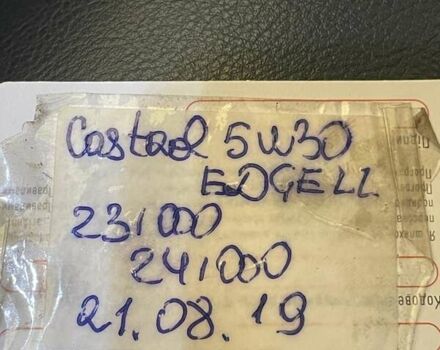 Castrol 5W30
EDGE LL
231000
241000
21.08.19